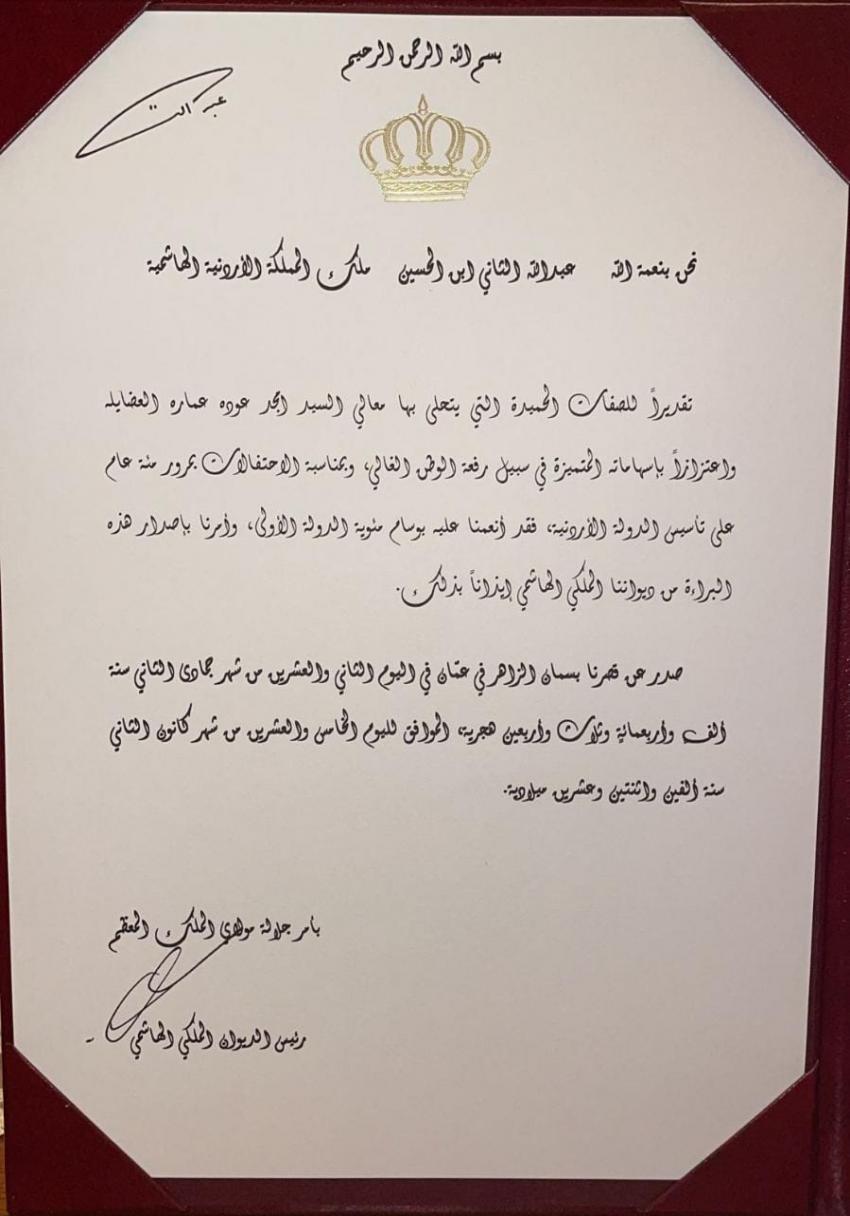 بسم الله الرحمن الرحيم
عبد الله
نحن بنعمة الله عبدالله الثاني ابن الحسين ملك المملكة الأردنية الهاشمية
تقديراً للصفات الحميدة التي يتحلى بها معالي السيد امجد عوده عماره العضايله
واعتزازاً بإسهاماته المتميزة في سبيل رفعة الوطن الغالي، وبمناسبة الاحتفالات بمرور مئة عام
على تأسيس الدولة الأردنية، فقد أنعمنا عليه بوسام مئوية الدولة الأولى، وأمرنا بإصدار هذه
البراءة من ديواننا الملكي الهاشمي إيذاناً بذلك.
صدر عن قصرنا بسمان الزاهر في عمّان في اليوم الثاني والعشرين من شهر جمادى الثاني سنة
ألف وأربعمائة وثلاث وأربعين هجرية، الموافق لليوم الخامس والعشرين من شهر كانون الثاني
سنة ألفين واثنتين وعشرين ميلادية.
بأمر جلالة مولاي الملك المعظم
رئيس الديوان الملكي الهاشمي